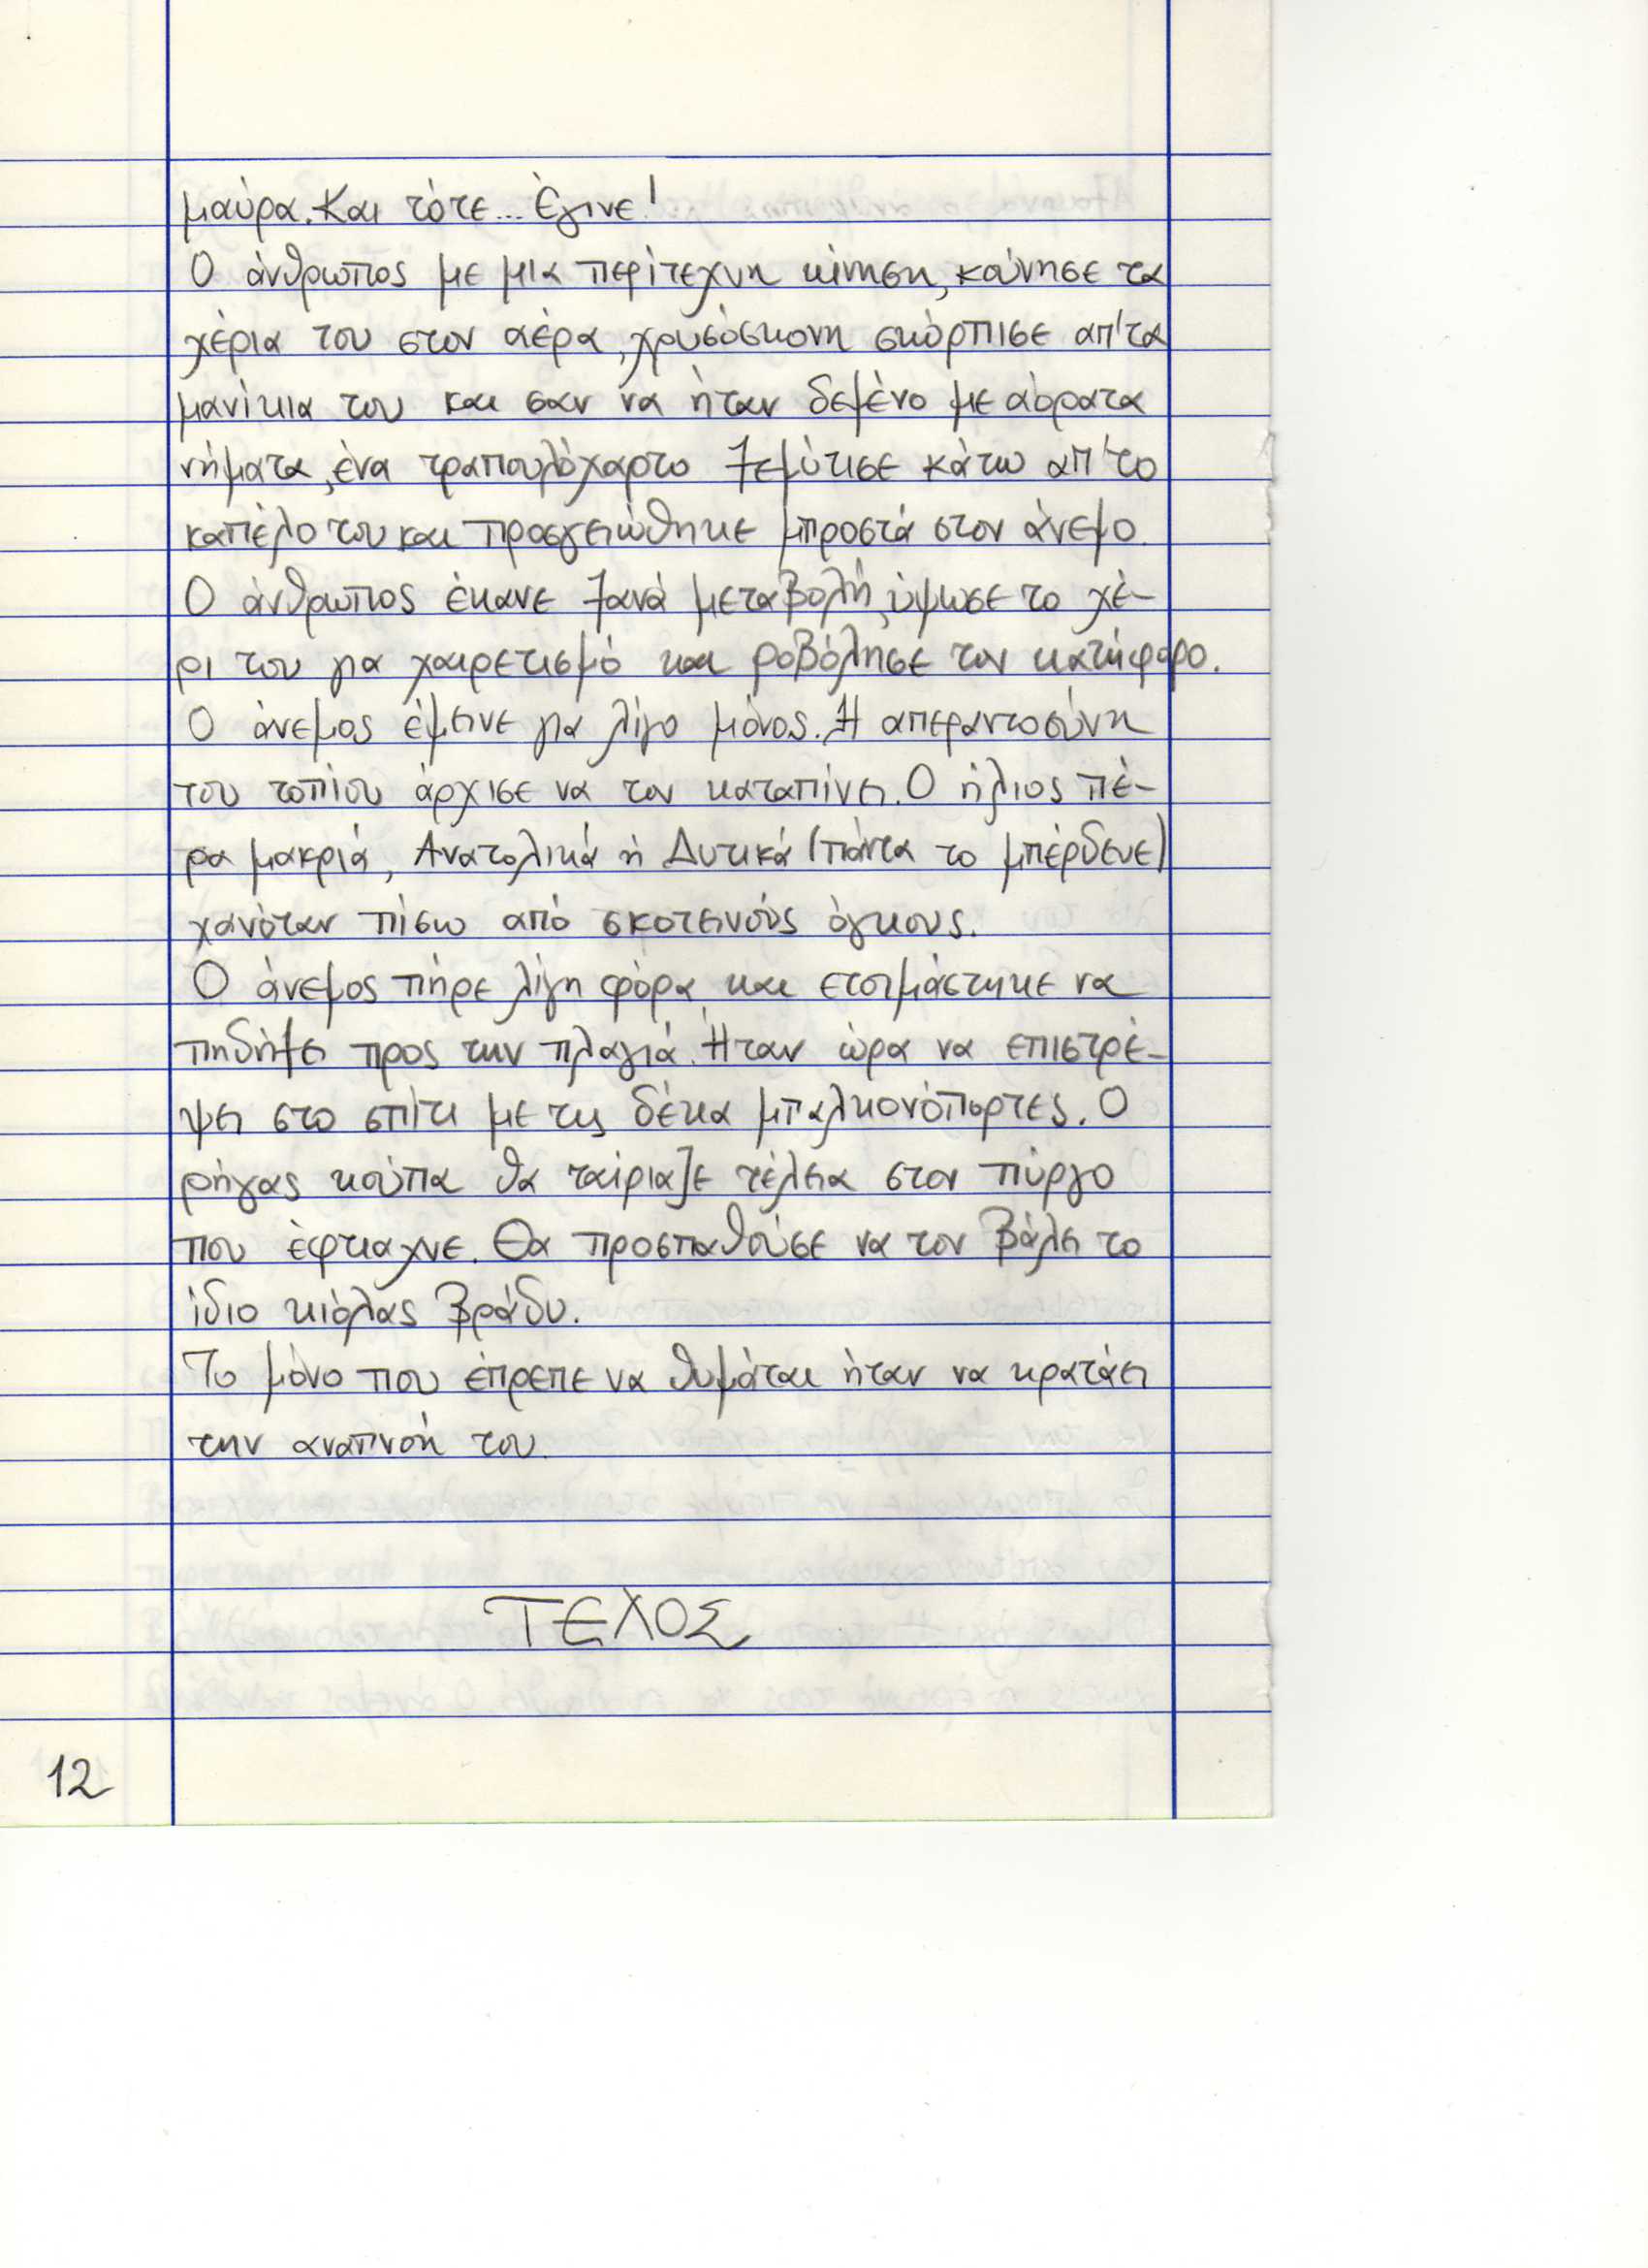 μαύρα. Και τότε... Έγινε!
Ο άνθρωπος με μια περίτεχνη κίνηση, κούνησε τα
χέρια του στον αέρα, χρυσόσκονη σκόρπισε απ'τα
μανίκια του και σαν να ήταν δεμένο με αόρατα
νήματα, ένα τραπουλόχαρτο ξεμύτισε κάτω απ'το
καπέλο του και προσγειώθηκε μπροστά στον άνεμο.
Ο άνθρωπος έκανε ξανά μεταβολή, ύψωσε το χέ-
ρι του για χαιρετισμό και ροβόλησε τον κατήφορο.
Ο άνεμος έμεινε για λίγο μόνος. Η απεραντοσύνη
του τοπίου άρχισε να τον καταπίνει. Ο ήλιος πέ-
ρα μακριά, Ανατολικά ή Δυτικά (πάντα το μπέρδευε)
χανόταν πίσω από σκοτεινούς όγκους.
Ο άνεμος πήρε λίγη φόρα και ετοιμάστηκε να
πηδήξει προς την πλαγιά. Ήταν ώρα να επιστρέ-
ψει στο σπίτι με τις δέκα μπαλκονόπορτες. Ο
ρήγας κούπα θα ταίριαζε τέλεια στον πύργο
που έφτιαχνε. Θα προσπαθούσε να τον βάλει το
ίδιο κιόλας βράδυ.
Το μόνο που έπρεπε να θυμάται ήταν να κρατάει
την αναπνοή του.
ΤΕΛΟΣ
12